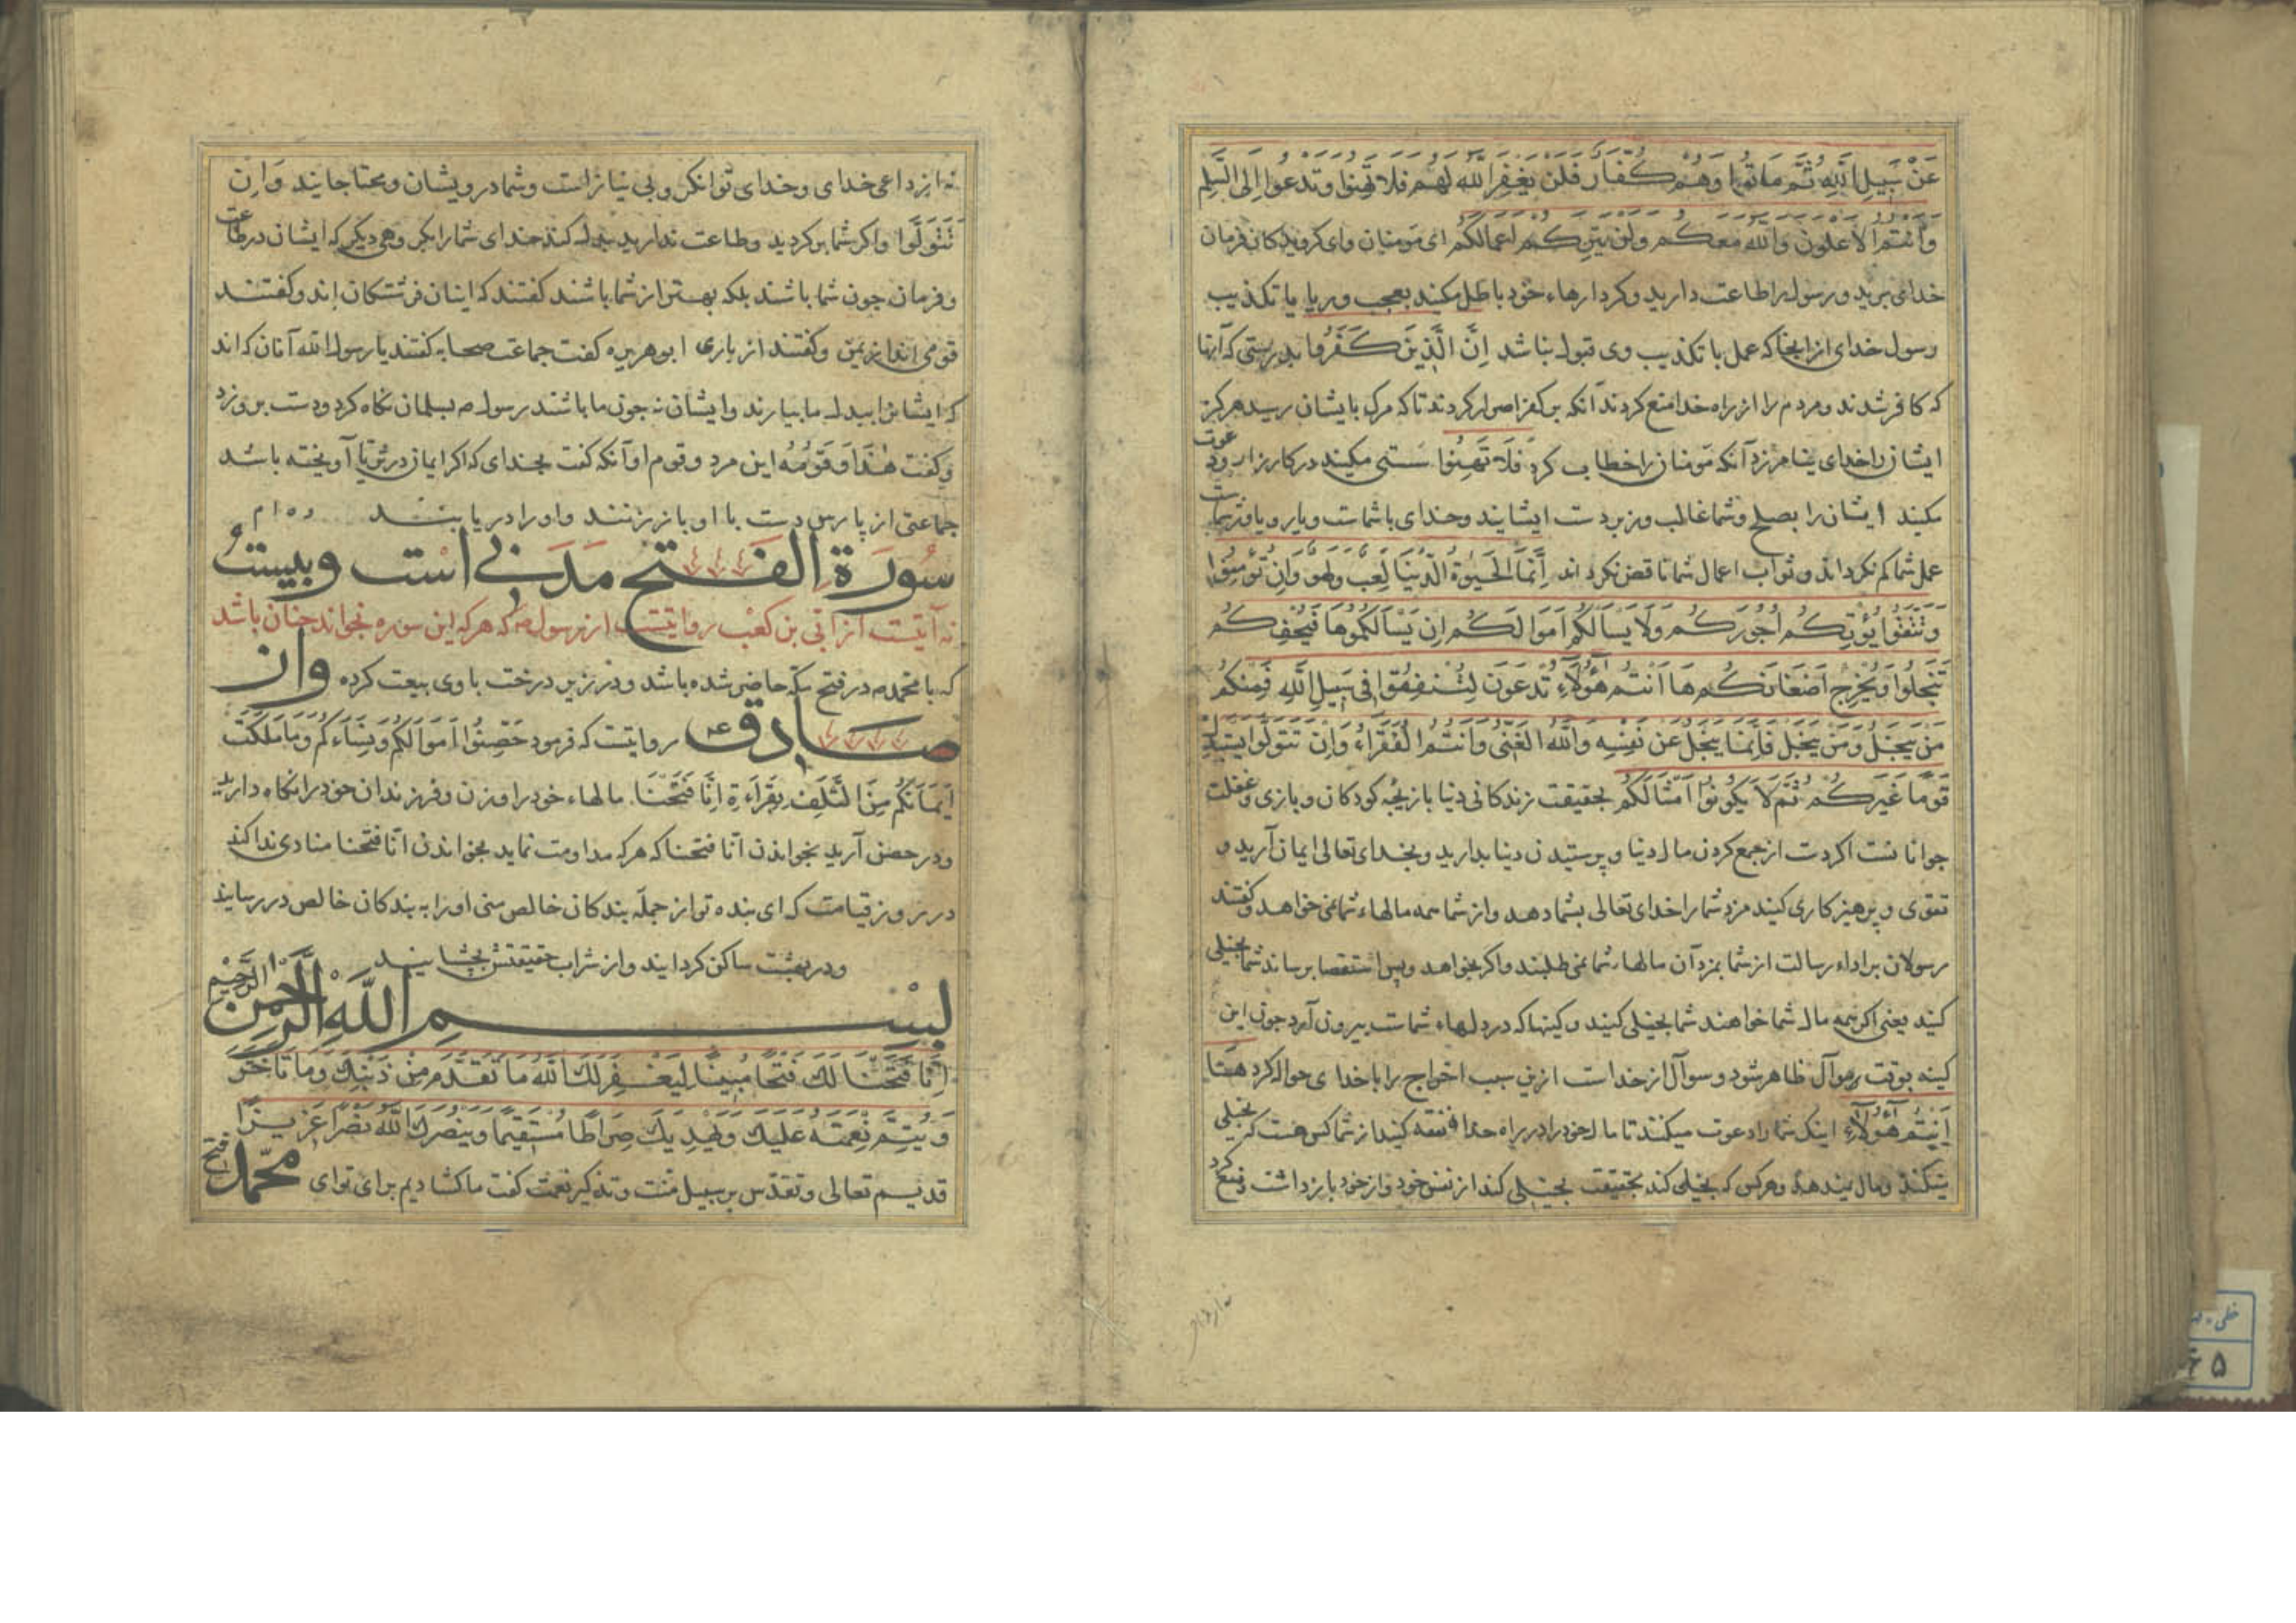 عَنْ سَبِيلِ اللَّهِ ثُمَّ مَاتُوا وَهُمْ كُفَّارٌ فَلَنْ يَغْفِرَ اللَّهُ لَهُمْ فَلَا تَهِنُوا وَتَدْعُوا إِلَى السَّلْمِ
وَأَنْتُمُ الْأَعْلَوْنَ وَاللَّهُ مَعَكُمْ وَلَنْ يَتِرَكُمْ أَعْمَالَكُمْ ای مؤمنان وای کرویدکان فرمان
خدای برید و رسول را طاعت دارید و کردارهاء خود باطل مکنید بعجب و ریا یا تکذیب
رسول خدای از انجا که عمل با تکذیب وی قبول نباشد إِنَّ الَّذِينَ كَفَرُوا بدرستی که آنها
که کافر شدند و مردم را از راه خدا منع کردند آنکه بر کفر اصرار کردند تا که مرک بایشان رسید هرکز
ایشان را خدای نیامرزد آنکه مؤمنان را خطاب کرد فَلَا تَهِنُوا سستی مکنید در کارزار و دعوت
مکنید ایشان را بصلح و شما غالب و زبر دست ایشانید و خدای با شماست و یار و یاور شماست
عمل شما کم نکرداند و ثواب اعمال شما ناقص نکرداند إِنَّمَا الْحَيٰوةُ الدُّنْيَا لَعِبٌ وَلَهْوٌ وَإِنْ تُؤْمِنُوا
وَتَتَّقُوا يُؤْتِكُمْ أُجُورَكُمْ وَلَا يَسْأَلْكُمْ أَمْوَالَكُمْ إِنْ يَسْأَلْكُمُوهَا فَيُحْفِكُمْ
تَبْخَلُوا وَيُخْرِجْ أَضْغَانَكُمْ هَا أَنْتُمْ هَؤُلَاءِ تُدْعَوْنَ لِتُنْفِقُوا فِي سَبِيلِ اللَّهِ فَمِنْكُمْ
مَنْ يَبْخَلُ وَمَنْ يَبْخَلْ فَإِنَّمَا يَبْخَلُ عَنْ نَفْسِهِ وَاللَّهُ الْغَنِيُّ وَأَنْتُمُ الْفُقَرَاءُ وَإِنْ تَتَوَلَّوْا يَسْتَبْدِلْ
قَوْمًا غَيْرَكُمْ ثُمَّ لَا يَكُونُوا أَمْثَالَكُمْ بحقیقت زندکانی دنیا بازیچه کودکان و بازی و غفلت
جوانانست اکر دست از جمع کردن مال دنیا و پرستیدن دنیا بدارید و بخدای تعالی ایمان آرید و
تقوی و پرهیزکاری کنید مزد شما را خدای تعالی بشما دهد و از شما همه مالهاء شما نمی خواهد و کفتند
رسولان بر اداء رسالت از شما بمزد آن مالهاء شما نمی طلبند و اکر بخواهد و بس استقصا برساند شما بخیلی
کنید یعنی اکر همه مال شما خواهند شما بخیلی کنید و کینها که در دلهاء شماست بیرون آرد جون این
کینه بوقت سوآل ظاهر شود و سوآل از خداست ازین سبب اخراج را با خدای حواله کرد هَا
أَنْتُمْ هَؤُلَاءِ اینک شما را دعوت میکنند تا مال خود را در راه خدا نفقه کنید از شما کس هست که بخیلی
میکند و مال نمیدهد و هرکس که بخیلی کند بحقیقت بخیلی کند از نفس خود و از خود باز داشت و منع کرد
نه از داعی خدای و خدای توانکر و بی نیازست و شما درویشان و محتاجانید وَإِنْ
تَتَوَلَّوْا و اکر شما بر کردید و طاعت ندارید بدل کند خدای شما را بکروهی دیکر که ایشان در طاعت
و فرمان جون شما باشند بلکه بهتر از شما باشند کفتند که اینان فرشتکان اند و کفتند
قومی اند از یمن و کفتند از باری ابوهریره کفت جماعت صحابه کفتند یا رسول الله آنان که اند
که ایشانرا ببدل ما بیارند و ایشان نه جون ما باشند رسول ص بسلمان نکاه کرد و دست بر وزد
و کفت هَذَا وَقَوْمُهُ این مرد و قوم او آنکه کفت بخدای که اکر ایمان در ثریا آویخته باشد
جماعتی از پارس دست با او باز زنند و او را دریابند
سُورَةُ الفَتْح مَدَنی است و بیست
نه آیتست از ابی بن کعب روایتست از رسول ص که هرکه این سوره بخواند جنان باشد
که با محمد ص در فتح مکه حاضر شده باشد و در زیر درخت با وی بیعت کرده وَاز
صادق ع روایتست که فرمود حَصِّنُوا أَمْوَالَكُمْ وَنِسَاءَكُمْ وَمَا مَلَكَتْ
أَيْمَانُكُمْ مِنَ التَّلَفِ بِقِرَاءَةِ إِنَّا فَتَحْنَا. مالهاء خود را و زن و فرزندان خود را نکاه دارید
و در حصن آرید بخواندن انا فتحنا که هرکه مداومت نماید بخواندن انا فتحنا منادی ندا کند
در روز قیامت که ای بنده تو از جمله بندکان خالص منی او را به بندکان خالص در رسانید
و در بهشت ساکن کردانید و از شراب حقیقتش بچشانید
بِسْمِ اللَّهِ الرَّحْمٰنِ الرَّحِيمِ
إِنَّا فَتَحْنَا لَكَ فَتْحًا مُبِينًا لِيَغْفِرَ لَكَ اللَّهُ مَا تَقَدَّمَ مِنْ ذَنْبِكَ وَمَا تَأَخَّرَ
وَيُتِمَّ نِعْمَتَهُ عَلَيْكَ وَيَهْدِيَكَ صِرَاطًا مُسْتَقِيمًا وَيَنْصُرَكَ اللَّهُ نَصْرًا عَزِيزًا
قدیم تعالی و تقدس بر سبیل منت و تذکیر نعمت کفت ما کشادیم برای تو ای محمد فتح